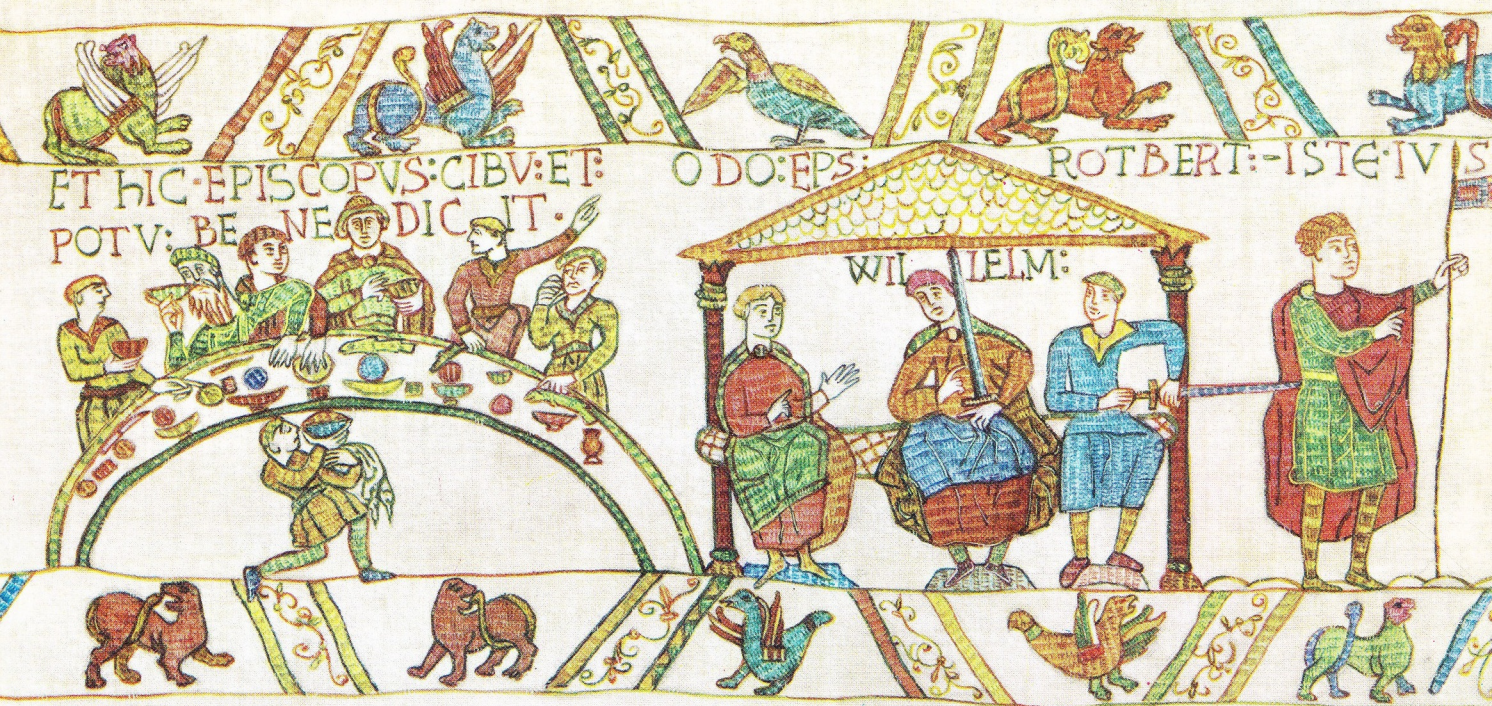 ET hIC·EPISCOPVS:CIBV:ET:
POTV: BENEDICIT·
ODO:EPS:
WILLELM:
ROTBERT:-ISTE·IVS